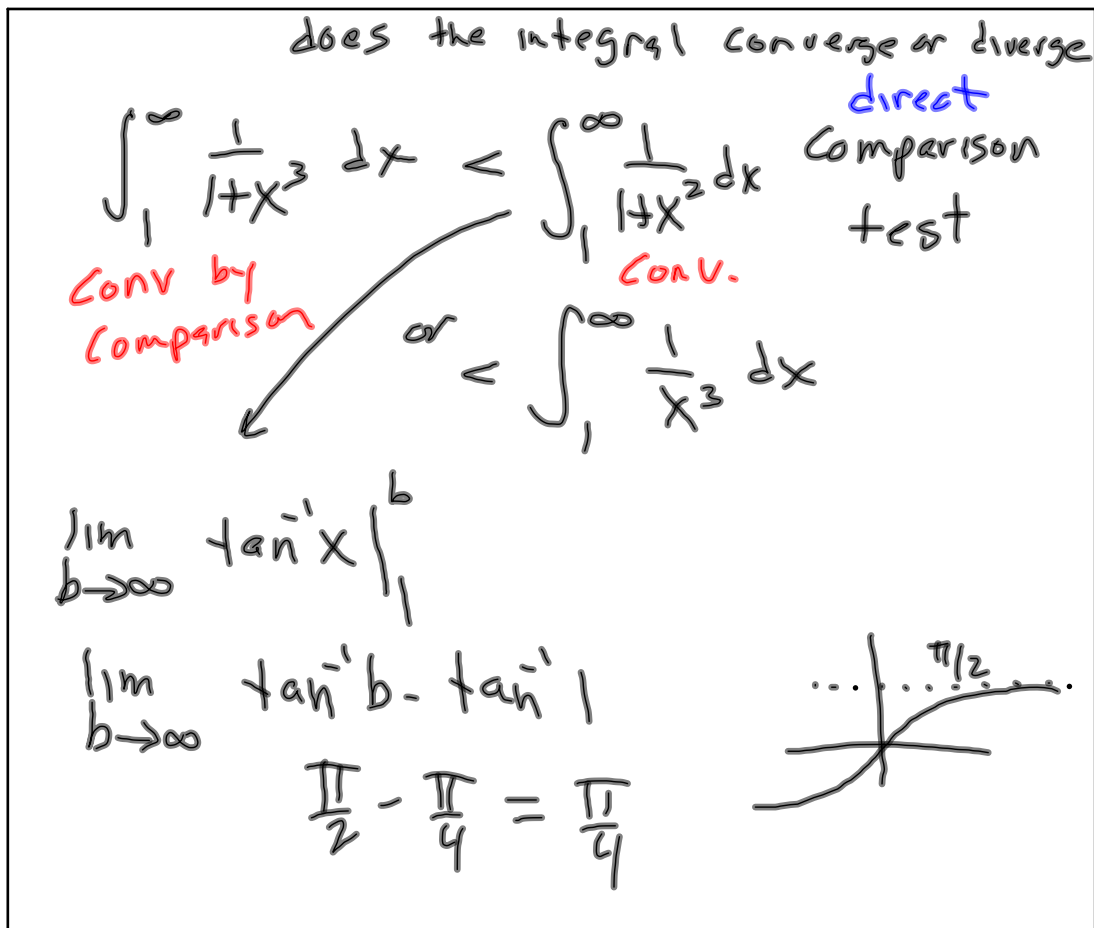 does the integral converge or diverge
direct
Comparison
test
∫₁^∞ 1/(1+x³) dx < ∫₁^∞ 1/(1+x²) dx
Conv by
Comparison
Conv.
or
< ∫₁^∞ 1/x³ dx
lim b→∞ tan⁻¹ x |₁^b
lim b→∞ tan⁻¹ b - tan⁻¹ 1
π/2 - π/4 = π/4
π/2